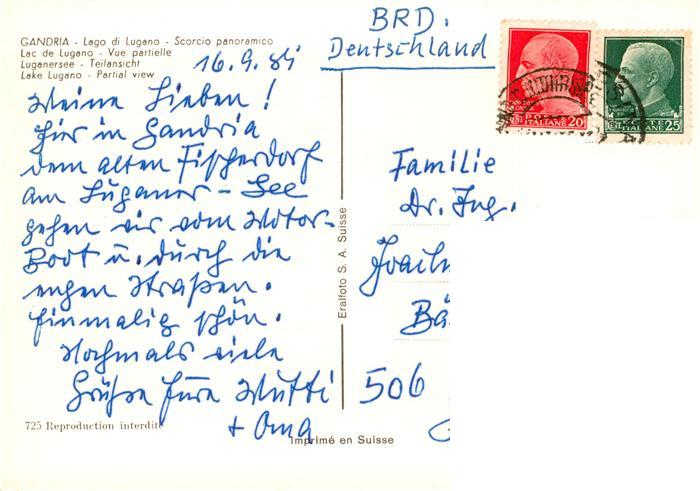 GANDRIA - Lago di Lugano - Scorcio panoramico
Lac de Lugano - Vue partielle
Luganersee - Teilansicht
Lake Lugano - Partial view
16.9.84
Meine Lieben!
Hier in Gandria
dem alten Fischerdorf
am Luganer-See
gehen wir vom Motor-
Boot u. durch die
engen Straßen.
Einmalig schön.
Nochmals viele
Grüße Eure Mutti
+ Oma
725 Reproduction interdite
Imprimé en Suisse
Eralfoto S. A. Suisse
BRD.
Deutschland
POSTE
ITALIANE 20
POSTE
ITALIANE 25
Familie
Dr. Ing.
Joach
Bä
506